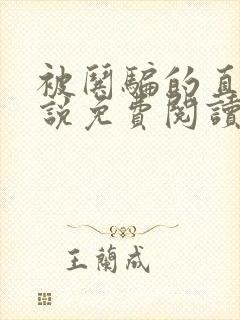 被鬨騙的直
說免費閱讀
王蘭成